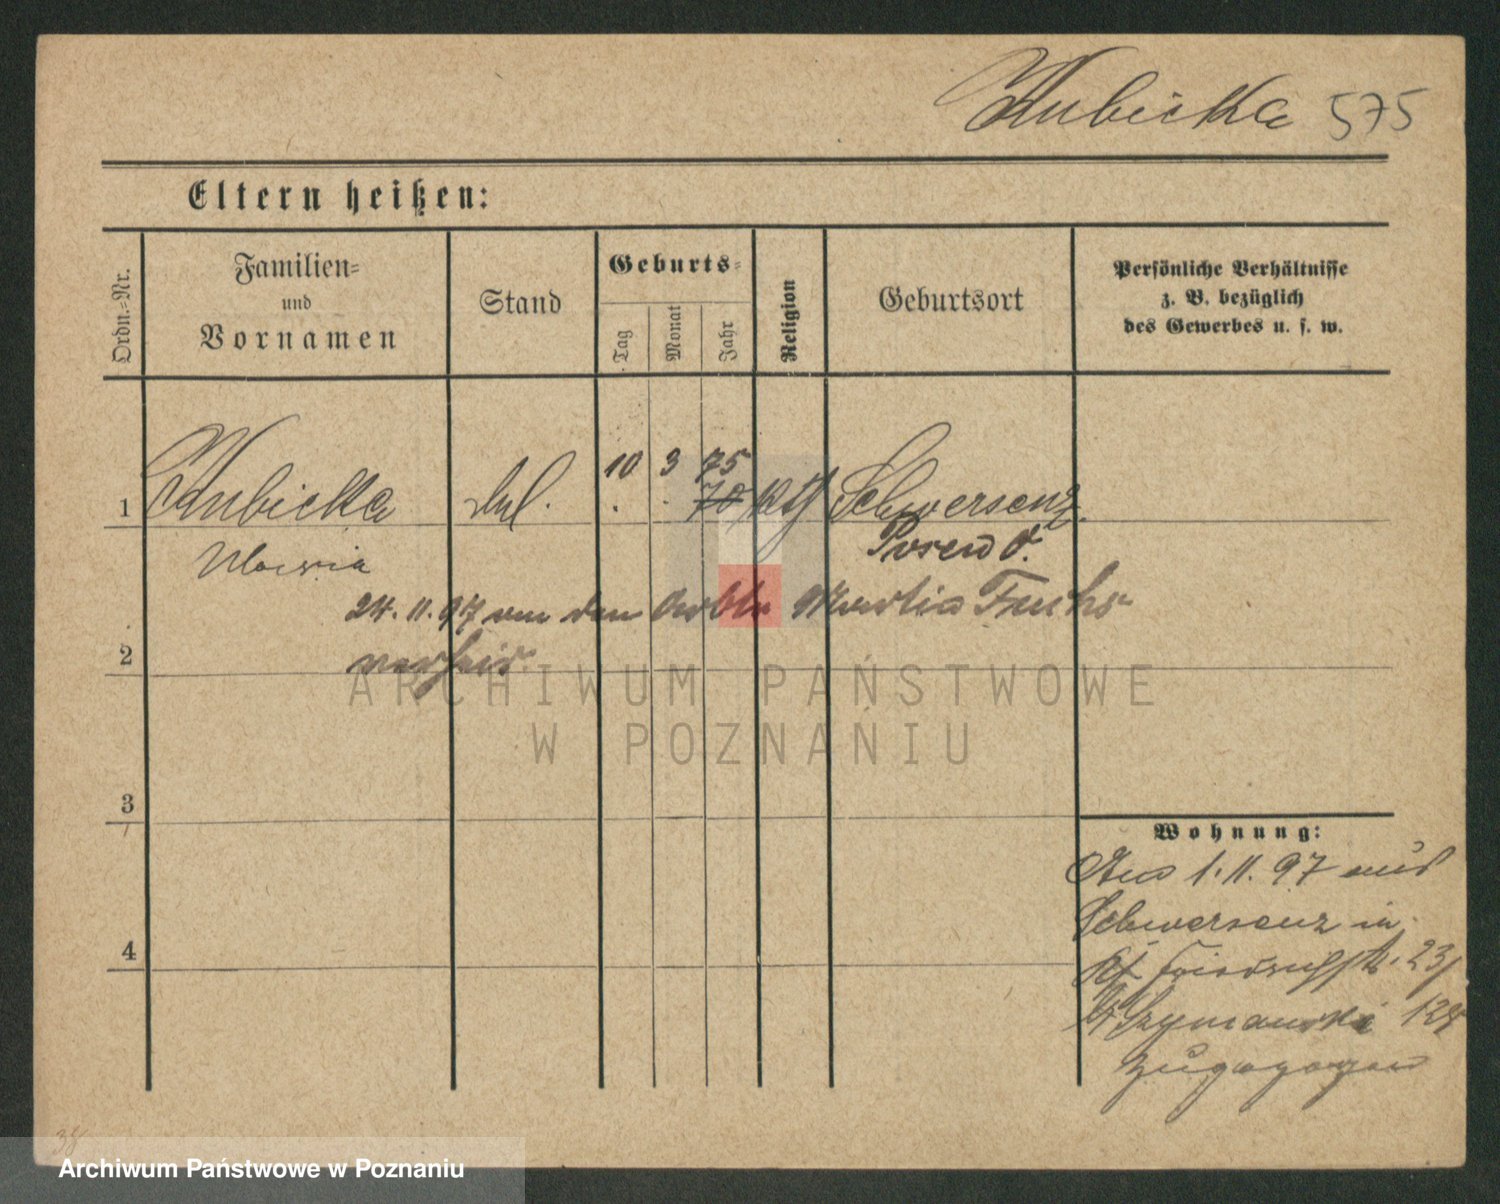 575
Eltern heißen:
Ordn.=Nr.
Familien=
und
Vornamen
Stand
Geburts=
Tag
Monat
Jahr
Religion
Geburtsort
Persönliche Verhältnisse
z. B. bezüglich
des Gewerbes u. s. w.
1
10 3 75
70 kth Schwersenz
Maria
Posen O.
24. 11. 97 von den Arbtr Martin Fuchs
verheir.
2
ARCHIWUM PAŃSTWOWE
W POZNANIU
3
Wohnung:
Am 1. 11. 97 aus
Schwersenz in
4
23/
Szymanski 128
zugezogen
38
Archiwum Państwowe w Poznaniu